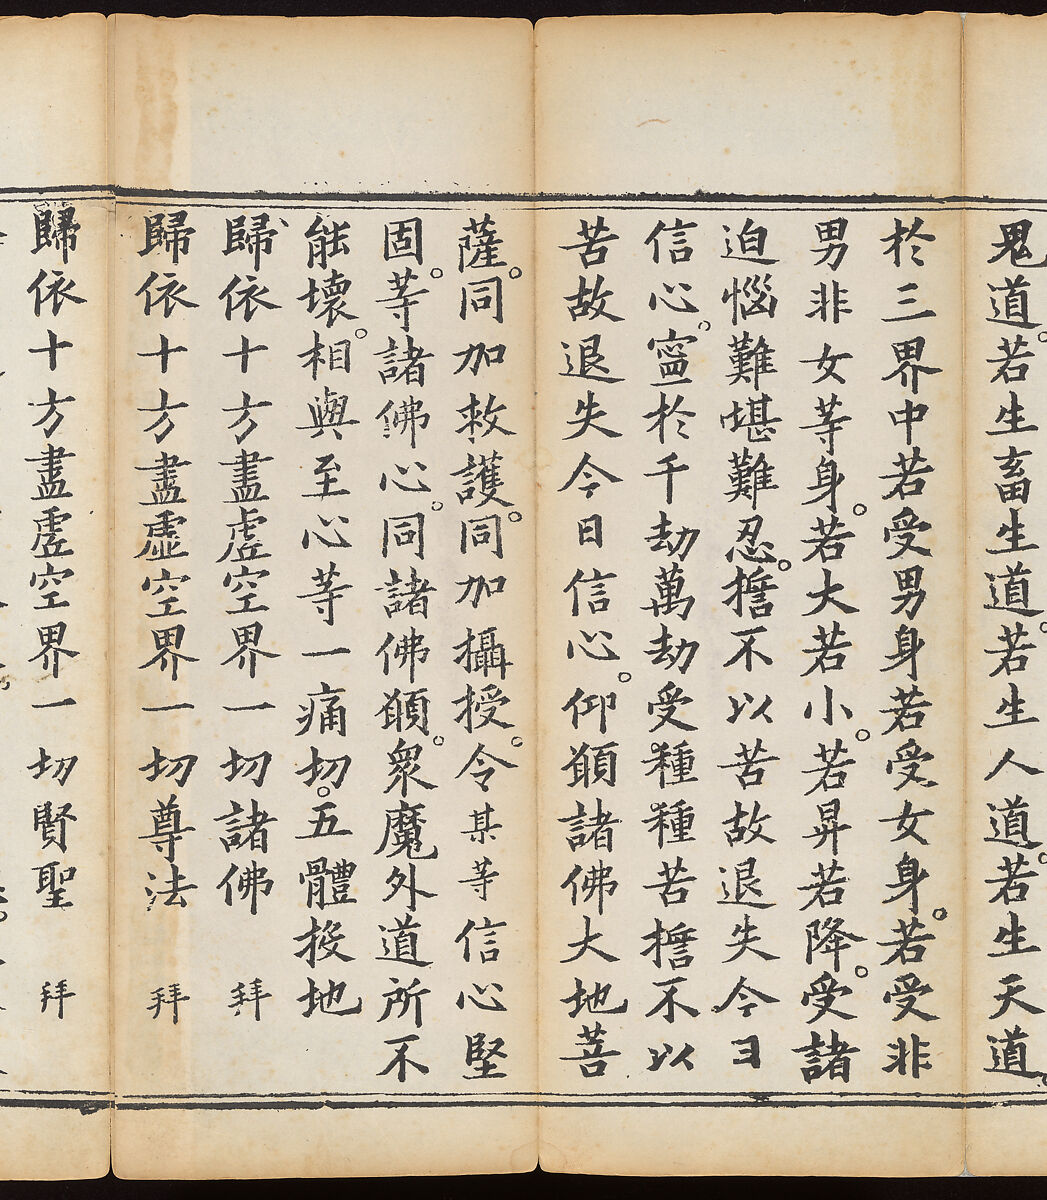 鬼道。若生畜生道。若生人道。若生天道。
於三界中若受男身若受女身。若受非
男非女等身。若大若小。若昇若降。受諸
迫惱難堪難忍。擔不以苦故退失今日
信心。寧於千劫萬劫受種種苦擔不以
苦故退失今日信心。仰頋諸佛大地菩
薩。同加救護。同加攝授。令某等信心堅
固。等諸佛心。同諸佛頋。衆魔外道所不
能壞。相與至心等一痛切。五體投地
歸依十方盡虛空界一切諸佛 拜
歸依十方盡虛空界一切尊法 拜
歸依十方盡虛空界一切賢聖 拜